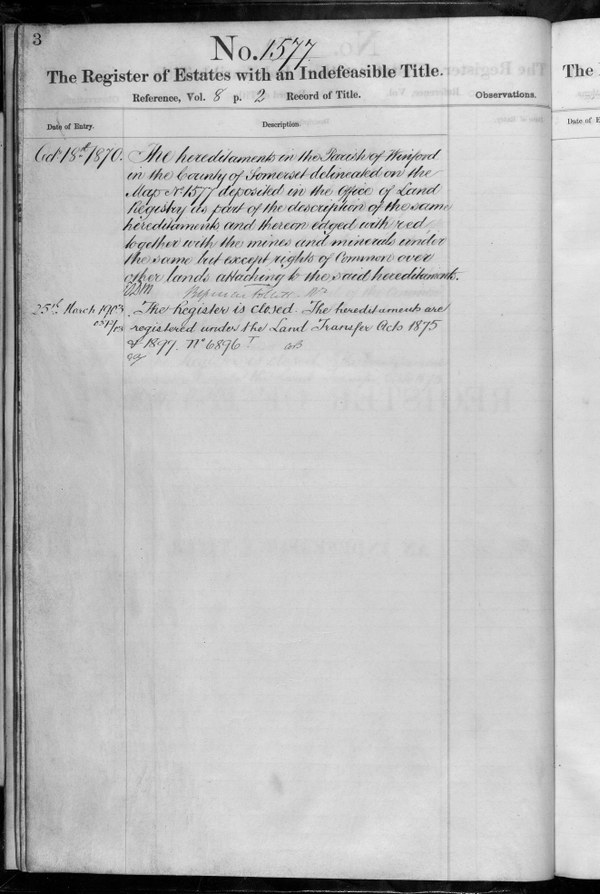 3
No. 1577
The Register of Estates with an Indefeasible Title.
Reference, Vol. 8 p. 2 Record of Title.
Observations.
Date of Entry.
Description.
Oct 18th 1870.
The hereditaments in the Parish of Winford
in the County of Somerset delineated on the
Map No 1577 deposited in the Office of Land
Registry as part of the description of the same
hereditaments and thereon edged with red
together with the mines and minerals under
the same but except rights of Common over
other lands attaching to the said hereditaments.
25th March 1903
The Register is closed. The hereditaments are
registered under the Land Transfer Acts 1875
& 1897. No 6896 T
The
Date of E